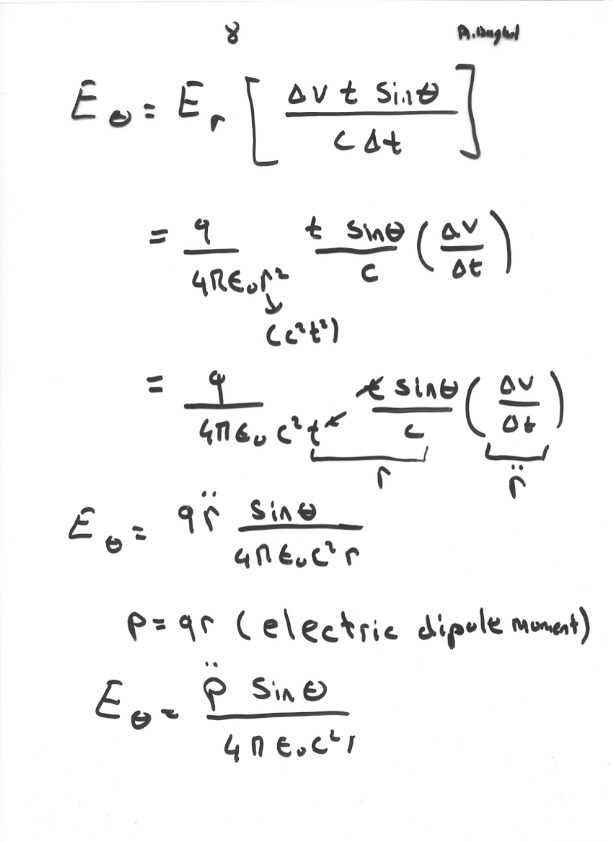 8
E_θ = E_r [ Δv t sinθ / c Δt ]
= q / 4πε₀r² t sinθ / c ( Δv / Δt )
↓
(c²t²)
= q / 4πε₀c²t² t sinθ / c ( Δv / Δt )
r r̈
E_θ = q r̈ sinθ / 4πε₀c²r
p = qr (electric dipole moment)
E_θ = p̈ sinθ / 4πε₀c²r